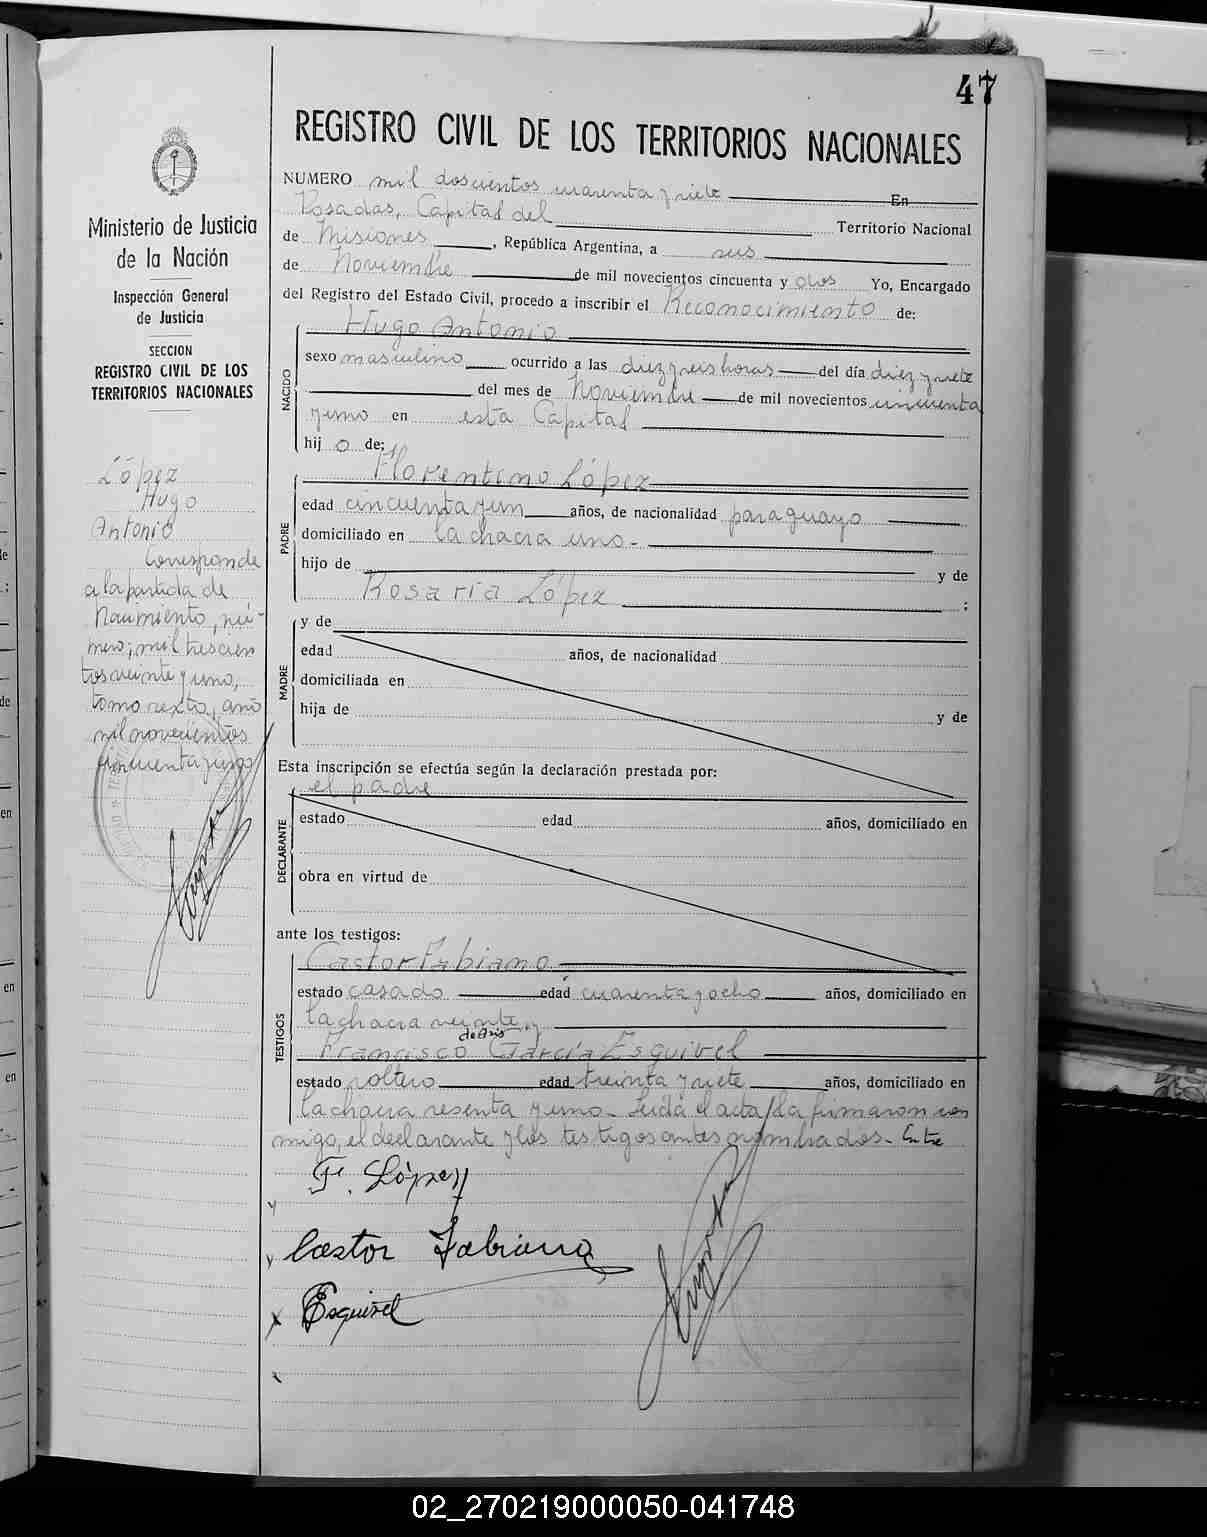 47
REGISTRO CIVIL DE LOS TERRITORIOS NACIONALES
Ministerio de Justicia
de la Nación
Inspección General
de Justicia
SECCION
REGISTRO CIVIL DE LOS
TERRITORIOS NACIONALES
López
Hugo
Antonio
Corresponde
a la partida de
Nacimiento, nú-
mero; mil trescien
tos veinte y uno,
tomo sexto, año
mil novecientos
cincuenta y uno
NUMERO mil doscientos cuarenta y siete En
Posadas, Capital del Territorio Nacional
de Misiones, República Argentina, a seis
de Noviembre de mil novecientos cincuenta y dos Yo, Encargado
del Registro del Estado Civil, procedo a inscribir el Reconocimiento de:
Hugo Antonio
NACIDO
sexo masculino ocurrido a las diez y seis horas del día diez y siete
del mes de Noviembre de mil novecientos cincuenta
y uno en esta Capital
hijo de:
Florentino López
PADRE
edad cincuenta y un años, de nacionalidad paraguayo
domiciliado en la chacra uno-
hijo de y de
Rosaria López ;
MADRE
y de
edad años, de nacionalidad
domiciliada en
hija de y de
Esta inscripción se efectúa según la declaración prestada por:
el padre
DECLARANTE
estado edad años, domiciliado en
obra en virtud de
ante los testigos:
Castor Fabiano
TESTIGOS
estado casado edad cuarenta y ocho años, domiciliado en
la chacra veinte, y
de Asis
Francisco García Esquivel
estado soltero edad treinta y siete años, domiciliado en
la chacra sesenta y uno- Leída el acta, la firmaron con
migo, el declarante y los testigos antes nombrados- Entre
F. López
Castor Fabiano
Esquivel
02_270219000050-041748